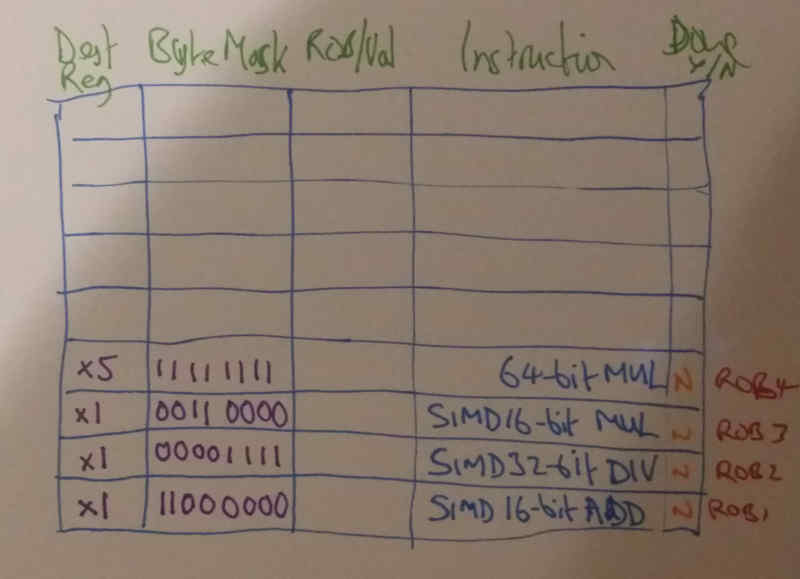 Dest Reg Byte Mask ROB/Val Instruction Done Y/N
x5 11111111 64-bit MUL N ROB4
x1 00110000 SIMD16-bit MUL N ROB3
x1 00001111 SIMD32-bit DIV N ROB2
x1 11000000 SIMD 16-bit ADD N ROB1